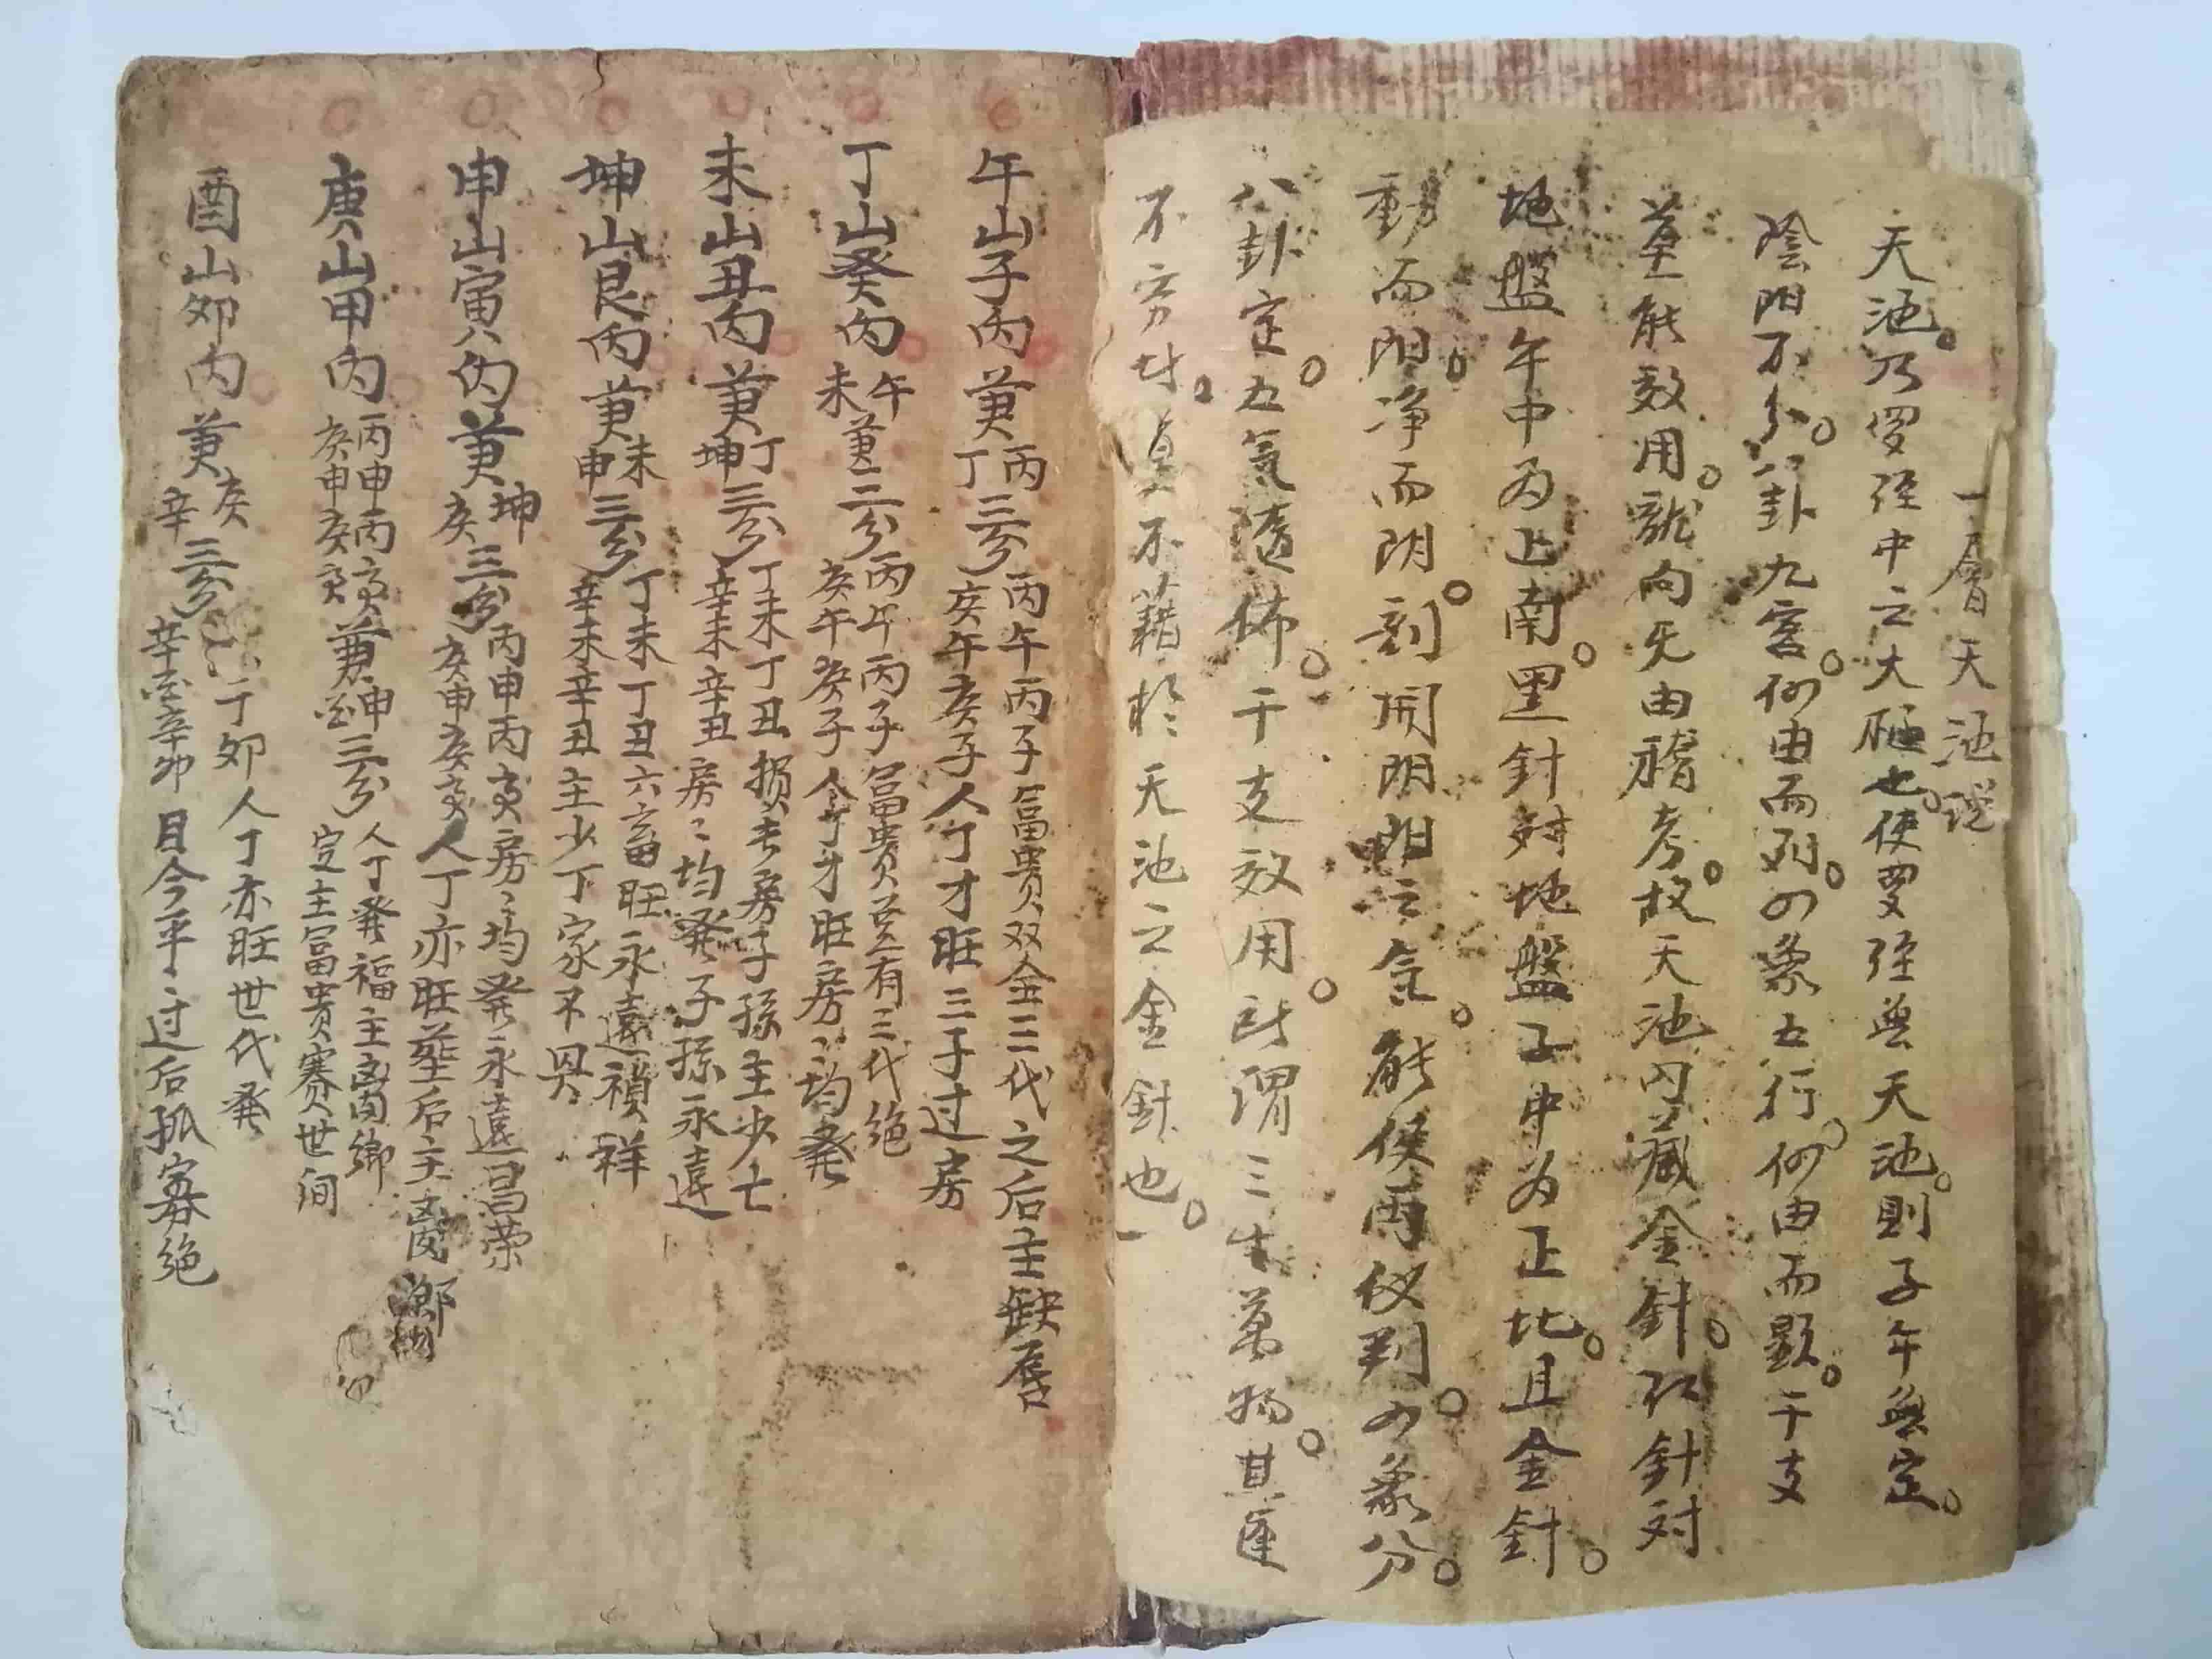 一層天池説
天池。乃罗経中之大極也。使罗経無天池。則子午無定。
陰阳不分。八卦九宮。何由而列。四象五行。何由而顕。干支
莫能效用。龍向无由稽考。故天池内藏金針。紅針対
地盤午中为正南。黑針対地盤子中为正北。且金針。
動而阳。净而阴。剖開阴阳之氣。能使两仪判。四象分。
八卦定。五氣随佈。干支效用。所謂三生萬物。其匡
不旁求。莫不藉於天池之金針也。
午山子内兼丙丁三分丙午丙子富贵双全三代之后主缺唇
庚午庚子人丁才旺三子过房
丁山癸内午未兼三分丙午丙子富贵並有三代绝
庚午庚子人丁才旺房〻均發
未山丑内兼丁坤三分丁未丁丑损长房子孫主少亡
辛未辛丑房〻均發子孫永遠
坤山艮内兼未申三分丁未丁丑六畜旺永遠禎祥
辛未辛丑主少丁家不興
申山寅内兼坤庚三分丙申丙寅房〻均發永遠昌荣
庚申庚寅人丁亦旺塟后主离鄉
庚山甲内丙申丙寅庚申庚寅兼申酉三分人丁發福主离鄉
定主富貴赛世间
酉山卯内兼庚辛三分丁卯人丁亦旺世代發
辛酉辛卯目今平〻过后孤寡绝